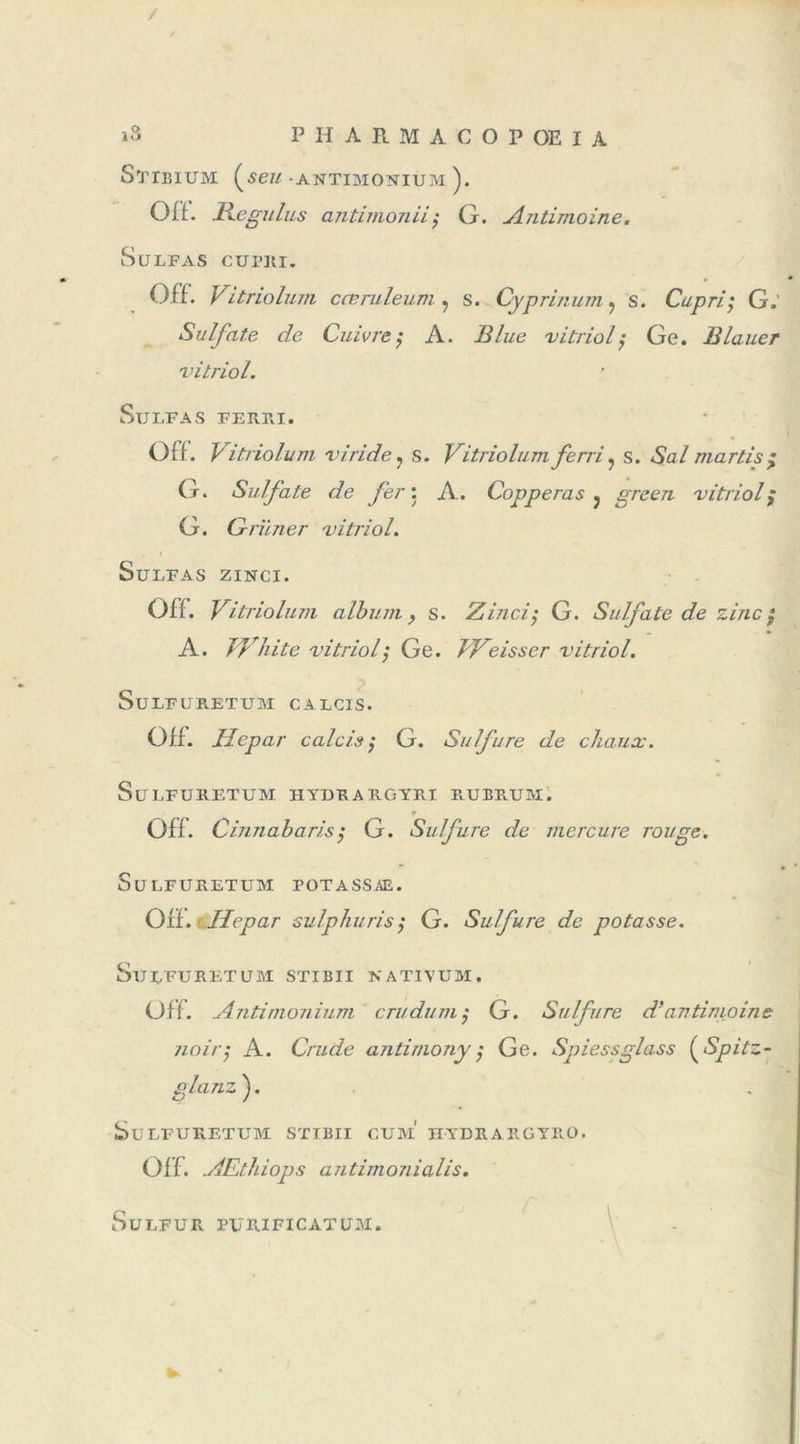 18 PHARMACOPOEIA
STIBIUM (seu ANTIMONIUM).
Off. Regulus antimonii; G. Antimoine.
SULFAS CUPRI.
Off. Vitriolum cœruleum, s. Cyprinum, s. Cupri; G.
Sulfate de Cuivre; A. Blue vitriol; Ge. Blauer
vitriol.
SULFAS FERRI.
Off. Vitriolum viride, s. Vitriolum ferri, s. Sal martis;
G. Sulfate de fer; A. Copperas, green vitriol;
G. Grüner vitriol.
SULFAS ZINCI.
Off. Vitriolum album, s. Zinci; G. Sulfate de zinc;
A. White vitriol; Ge. Weisser vitriol.
SULFURETUM CALCIS.
Off. Hepar calcis; G. Sulfure de chaux.
SULFURETUM HYDRARGYRI RUBRUM.
Off. Cinnabaris; G. Sulfure de mercure rouge.
SULFURETUM POTASSÆ.
Off. Hepar sulphuris; G. Sulfure de potasse.
SULFURETUM STIBII NATIVUM.
Off. Antimonium crudum; G. Sulfure d'antimoine
noir; A. Crude antimony; Ge. Spiessglass (Spitz-
glanz).
SULFURETUM STIBII CUM HYDRARGYRO.
Off. Æthiops antimonialis.
SULFUR PURIFICATUM.